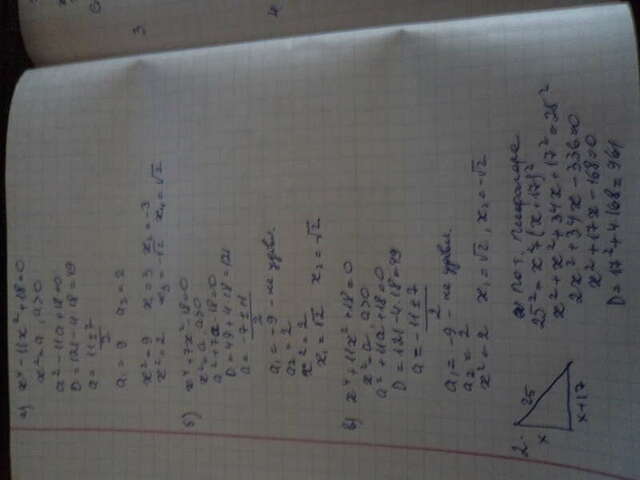 а) x⁴-11x²+18=0
x²=a, a>0
a²-11a+18=0
D=121-4·18=49
a=(11±7)/2
a₁=9 a₂=2
x²=9 x=3 x₂=-3
x²=2 x₃=-√2 x₄=√2
б) x⁴+7x²-18=0
x²=a a>0
a²+7a-18=0
D=49+4·18=121
a=(-7±11)/2
a₁=-9 - не удовл.
a₂=2
x²=2
x₁=√2 x₂=-√2
в) x⁴+11x²+18=0
x²=a a>0
a²+11a+18=0
D=121-4·18=49
a=(-11±7)/2
a₁=-9 - не удовл
a₂=2
x²=2 x₁=√2, x₂=-√2
2.
x
25
x+17
по т. Пифагора
25²=x²+(x+17)²
x²+x²+34x+17²=25²
2x²+34x-336=0
x²+17x-168=0
D=17²+4·168=961
3
4